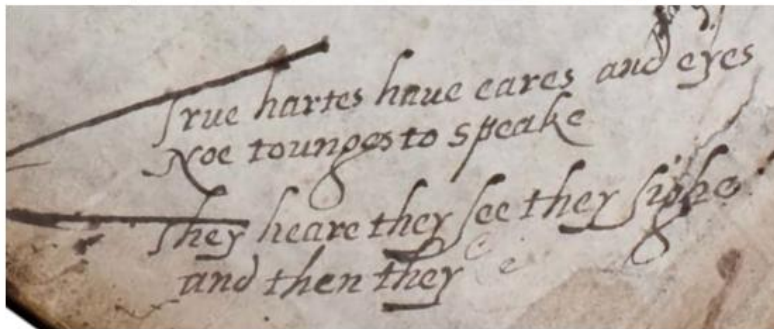 True hartes haue eares and eyes
Noe tounges to speake
They heare they see they sighe
and then they